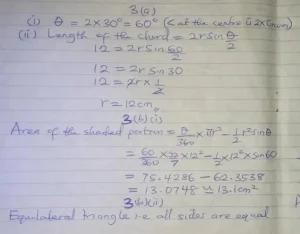 3(a)
(i) θ = 2×30° = 60° (< at the centre is 2× Circum)
(ii) Length of the chord = 2r sin θ/2
12 = 2r sin 60/2
12 = 2r sin 30
12 = 2r × 1/2
r = 12cm
3(b)(i)
Area of the shaded portion = θ/360 × πr² - 1/2 r² sinθ
= 60/360 × 22/7 × 12² - 1/2 × 12² × sin60
= 75.4286 - 62.3538
= 13.0748 ≃ 13.1cm²
3(b)(ii)
Equilateral triangle i.e all sides are equal